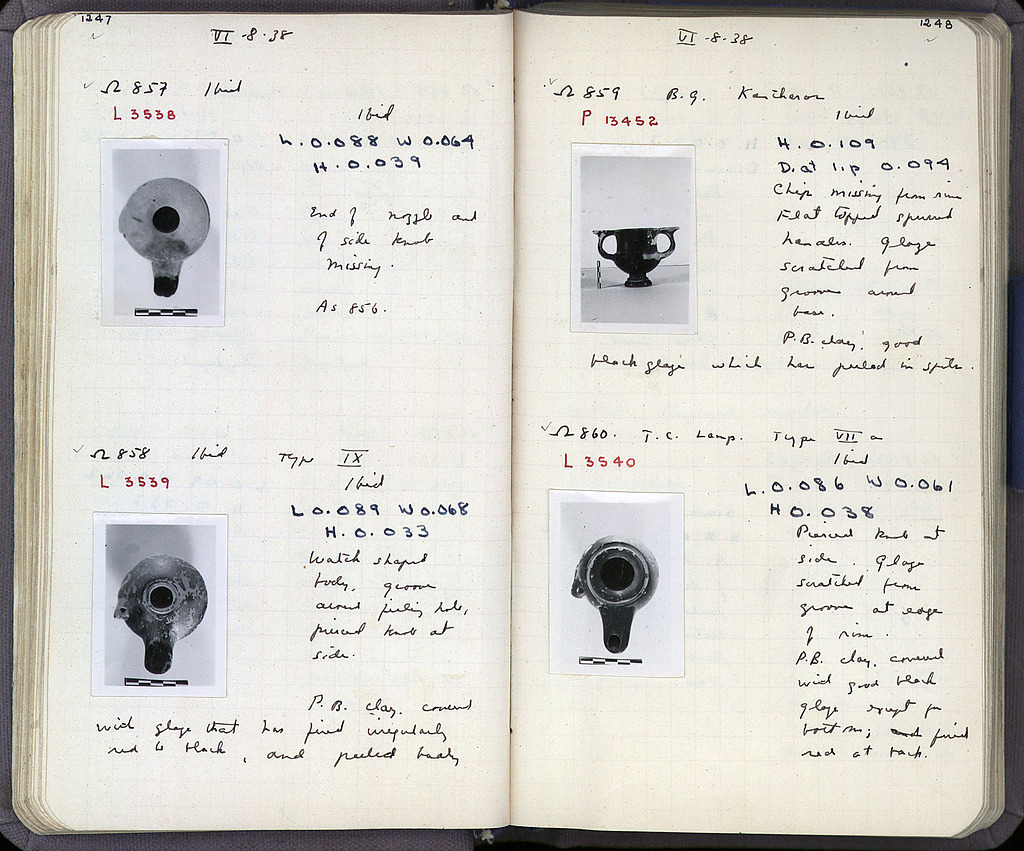 1247
VI -8-38
Ω 857 Ibid
L 3538
Ibid
L. 0.088 W 0.064
H. 0.039
End of nozzle and
of side knob
missing.
As 856.
Ω 858 Ibid Type IX
L 3539
Ibid
L 0.089 W 0.068
H. 0.033
Watch shaped
body, groove
around filling hole,
pierced knob at
side.
P.B. clay, covered
with glaze that has fired irregularly
red to black, and peeled badly
1248
VI -8-38
Ω 859 B.G. Kantharos
P 13452
Ibid
H. 0.109
D. at lip 0.094
Chip missing from rim
Flat topped spurred
handles. Glaze
scratched from
groove around
base.
P.B. clay; good
black glaze which has peeled in spots.
Ω 860. T.C. Lamp. Type VII a
L 3540
Ibid
L. 0.086 W 0.061
H 0.038
Pierced knob at
side. Glaze
scratched from
groove at edge
of rim.
P.B. clay, covered
with good black
glaze except for
bottom; fired
red at back.